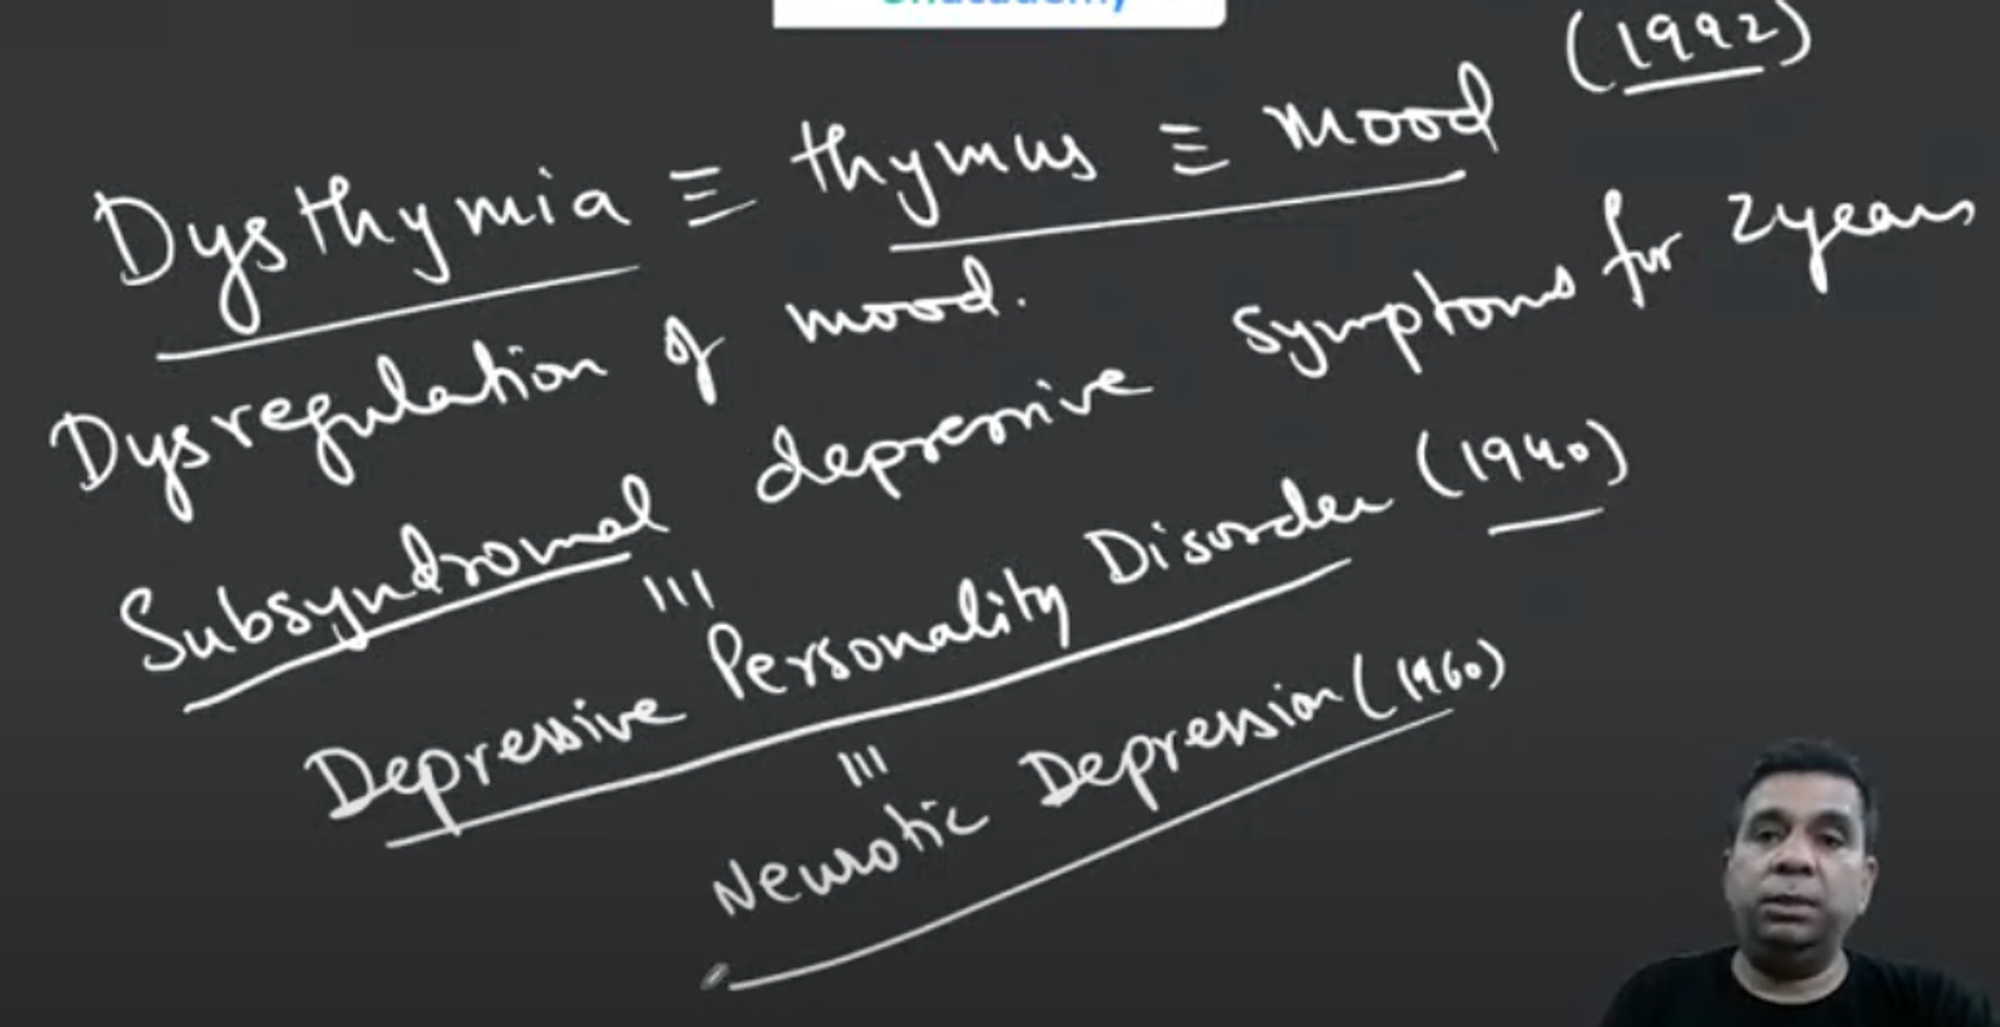 unacademy
(1992)
Dysthymia ≡ thymus ≡ mood
Dysregulation of mood.
Subsyndromal depressive symptoms for 2years
≡
Depressive Personality Disorder (1940)
≡
Neurotic Depression (1960)